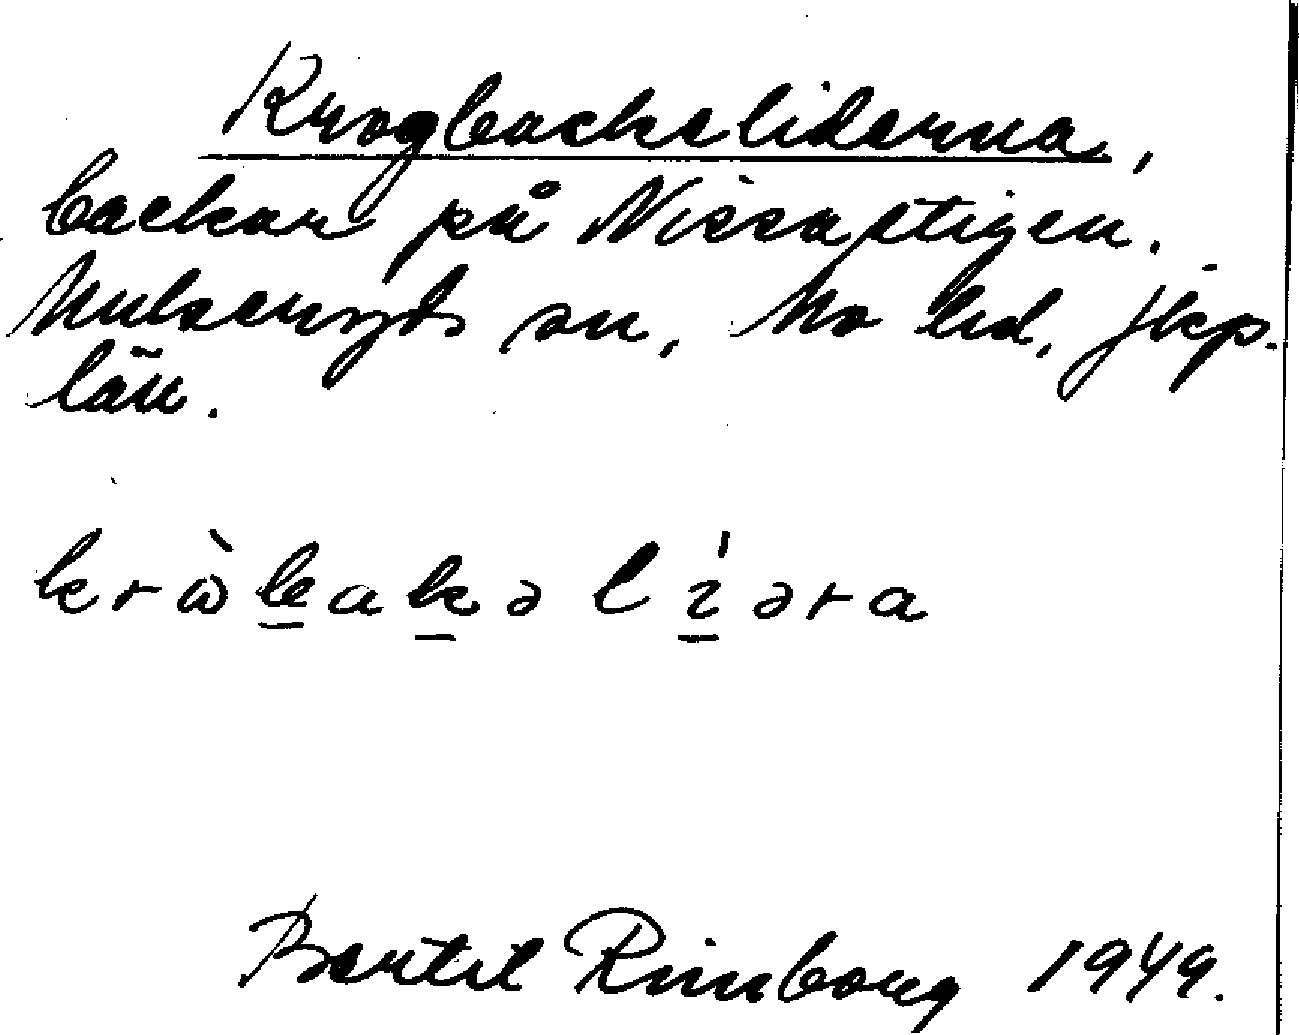 Krogbackeliderna,
backar på Nissastigen.
Hulseryds sn, Mo hd, Jkp.
län.
kròbakəlíəra
Bertil Rimborg 1949.